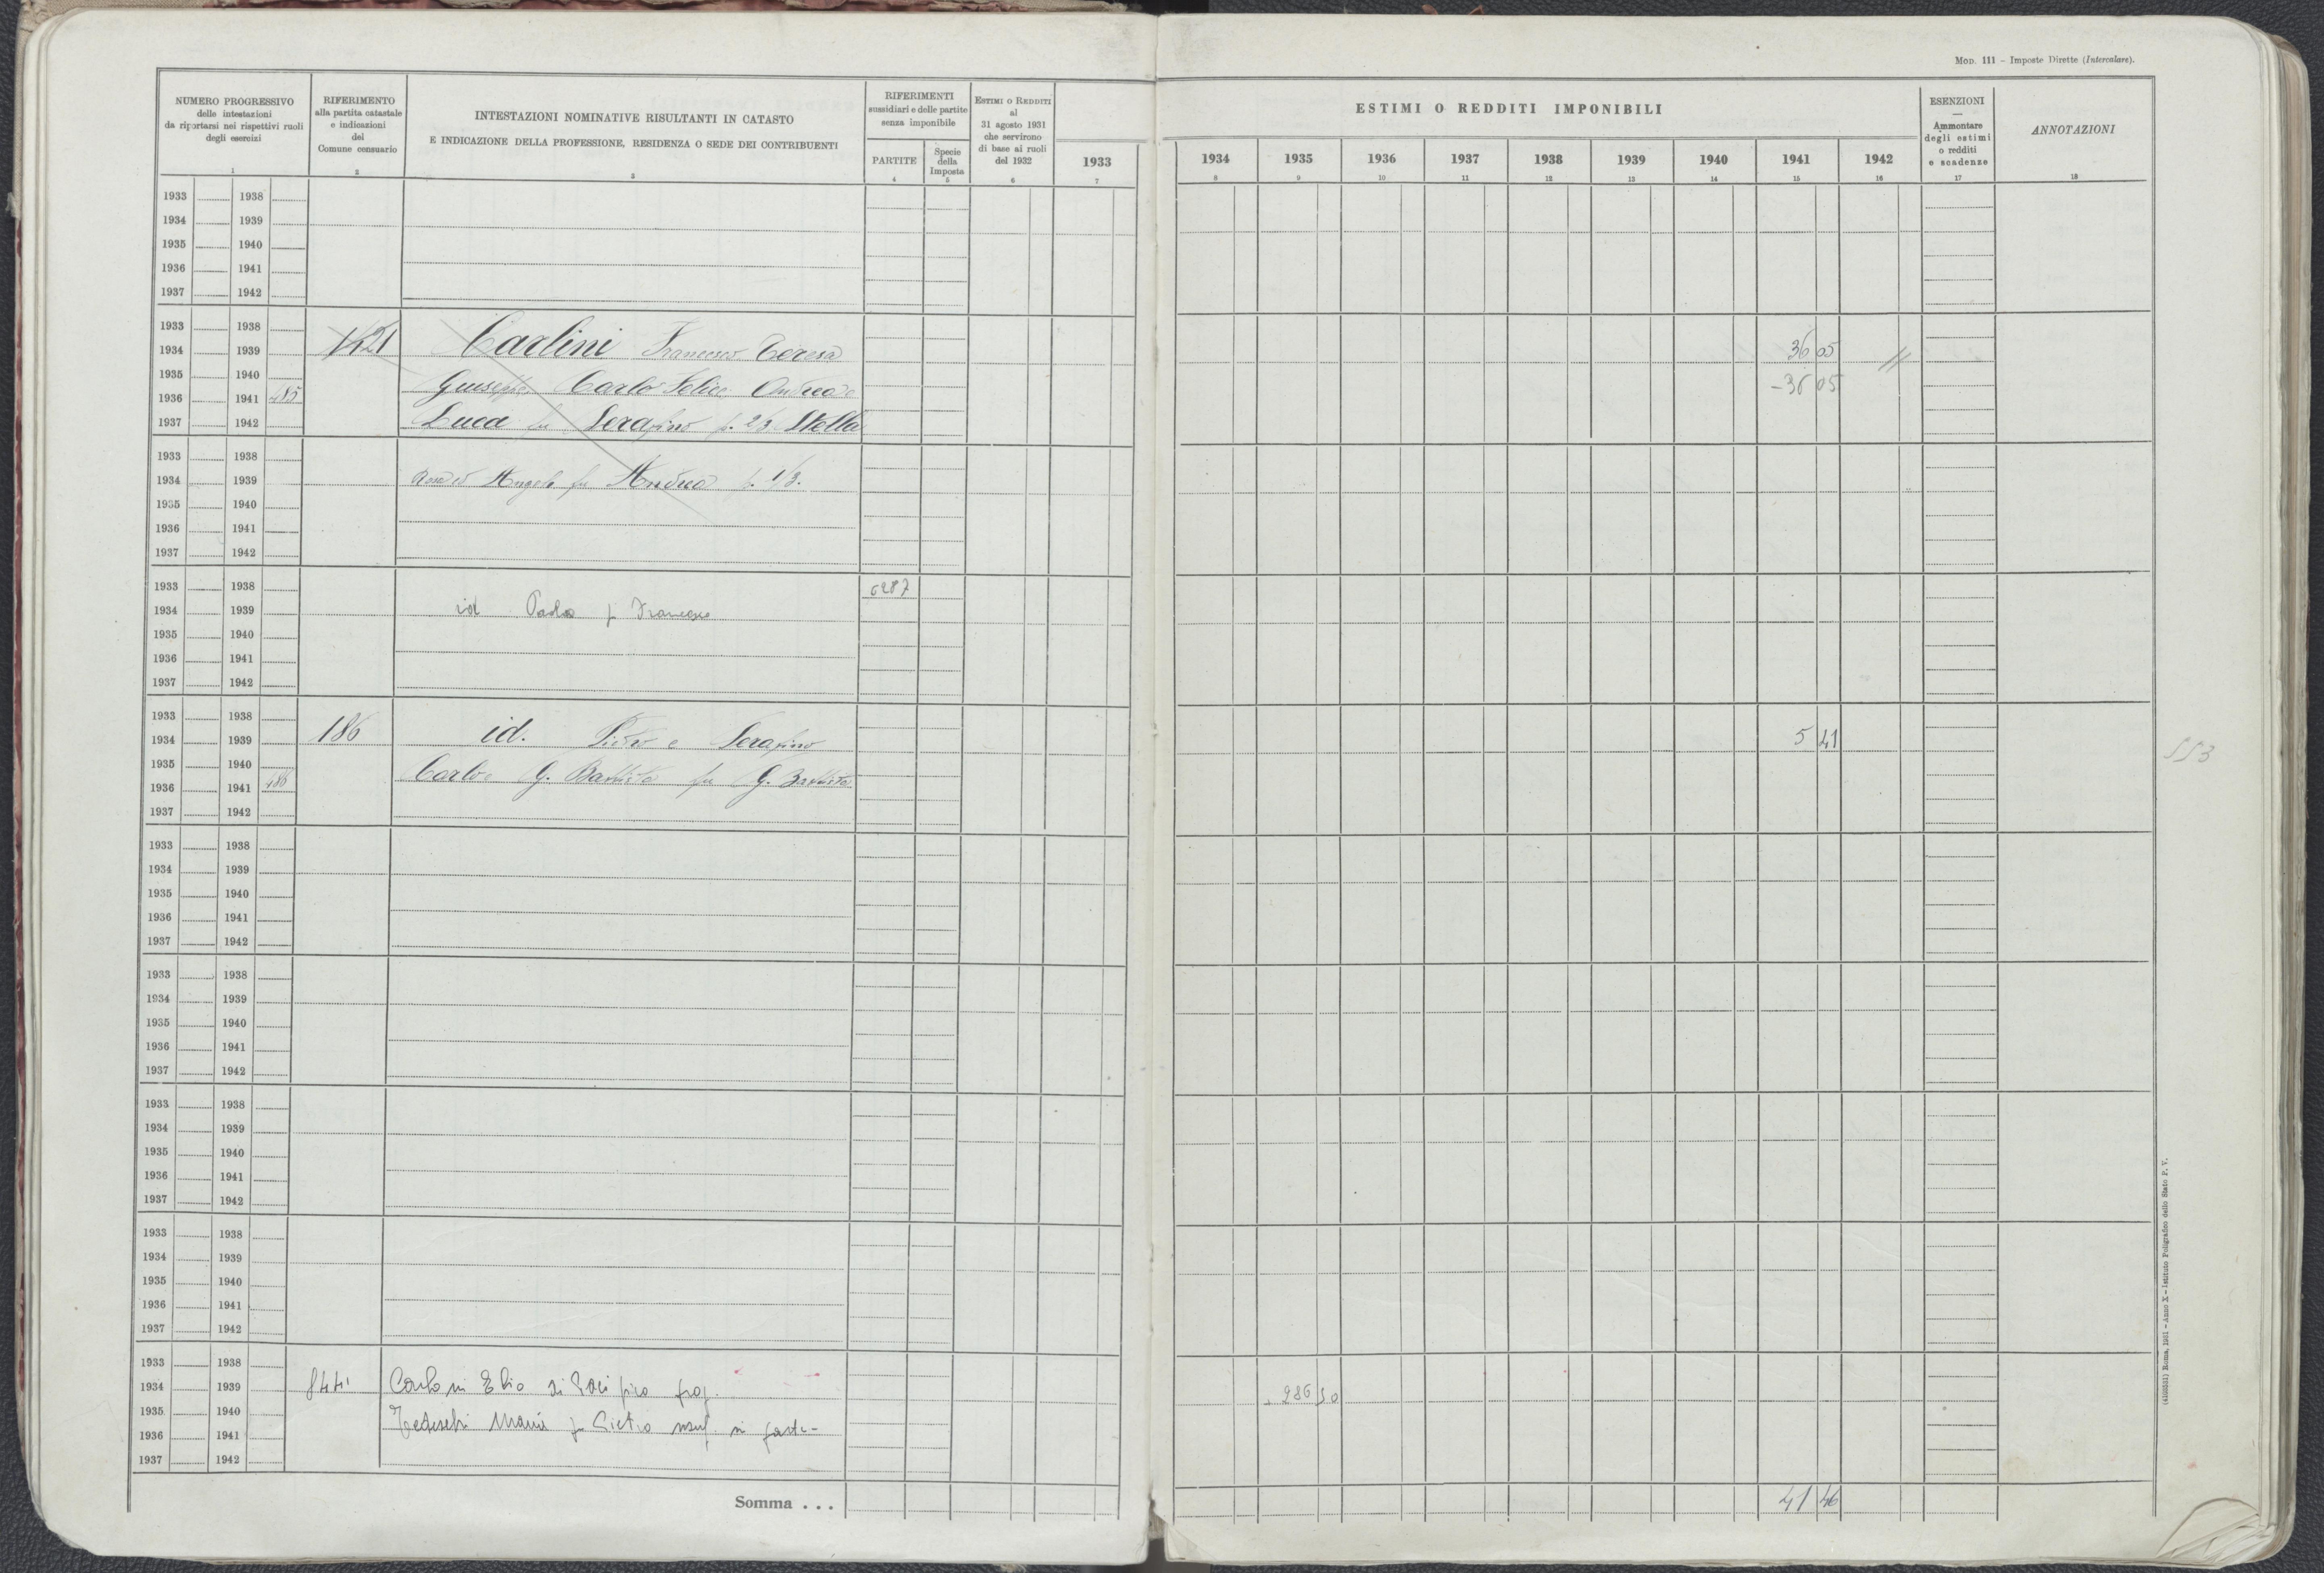 MOD. 111 – Imposte Dirette (Intercalare).
NUMERO PROGRESSIVO
delle intestazioni
da riportarsi nei rispettivi ruoli
degli esercizi
1
RIFERIMENTO
alla partita catastale
e indicazioni
del
Comune censuario
2
INTESTAZIONI NOMINATIVE RISULTANTI IN CATASTO
E INDICAZIONE DELLA PROFESSIONE, RESIDENZA O SEDE DEI CONTRIBUENTI
3
RIFERIMENTI
sussidiari e delle partite
senza imponibile
PARTITE
4
Specie
della
Imposta
5
ESTIMI O REDDITI
al
31 agosto 1931
che servirono
di base ai ruoli
del 1932
6
1933
7
ESTIMI O REDDITI IMPONIBILI
1934 1935 1936 1937 1938 1939 1940 1941 1942
8 9 10 11 12 13 14 15 16
ESENZIONI
—
Ammontare
degli estimi
o redditi
e scadenze
17
ANNOTAZIONI
18
1933 1938
1934 1939
1935 1940
1936 1941
1937 1942
1933 1938
1934 1939 Carlini Francesco Teresa 36 05
1935 1940 Giuseppe Carlo Felice Andrea -36 05
1936 1941 485
1937 1942 Luca fu Serafino p. 2/3 Stella
1933 1938
1934 1939 Angelo fu Andrea p. 1/3.
1935 1940
1936 1941
1937 1942
1933 1938 6287
1934 1939 id Paolo fu Francesco
1935 1940
1936 1941
1937 1942
1933 1938
1934 1939 186 id. Pietro e Serafino 5 41
1935 1940 Carlo G. Battista fu G. Battista
1936 1941 486
1937 1942
553
1933 1938
1934 1939
1935 1940
1936 1941
1937 1942
1933 1938
1934 1939
1935 1940
1936 1941
1937 1942
1933 1938
1934 1939
1935 1940
1936 1941
1937 1942
1933 1938
1934 1939
1935 1940
1936 1941
1937 1942
1933 1938
1934 1939 Elio di prop. 286 50
1935 1940 Tedeschi Maria fu Pietro usuf. in parte
1936 1941
1937 1942
Somma . . . 41 46
(4103581) Roma, 1931 – Anno X – Istituto Poligrafico dello Stato P. V.